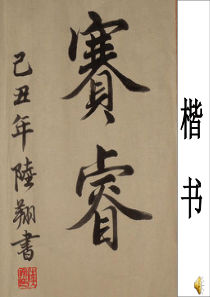 賽睿
己丑年陸翔書
楷书